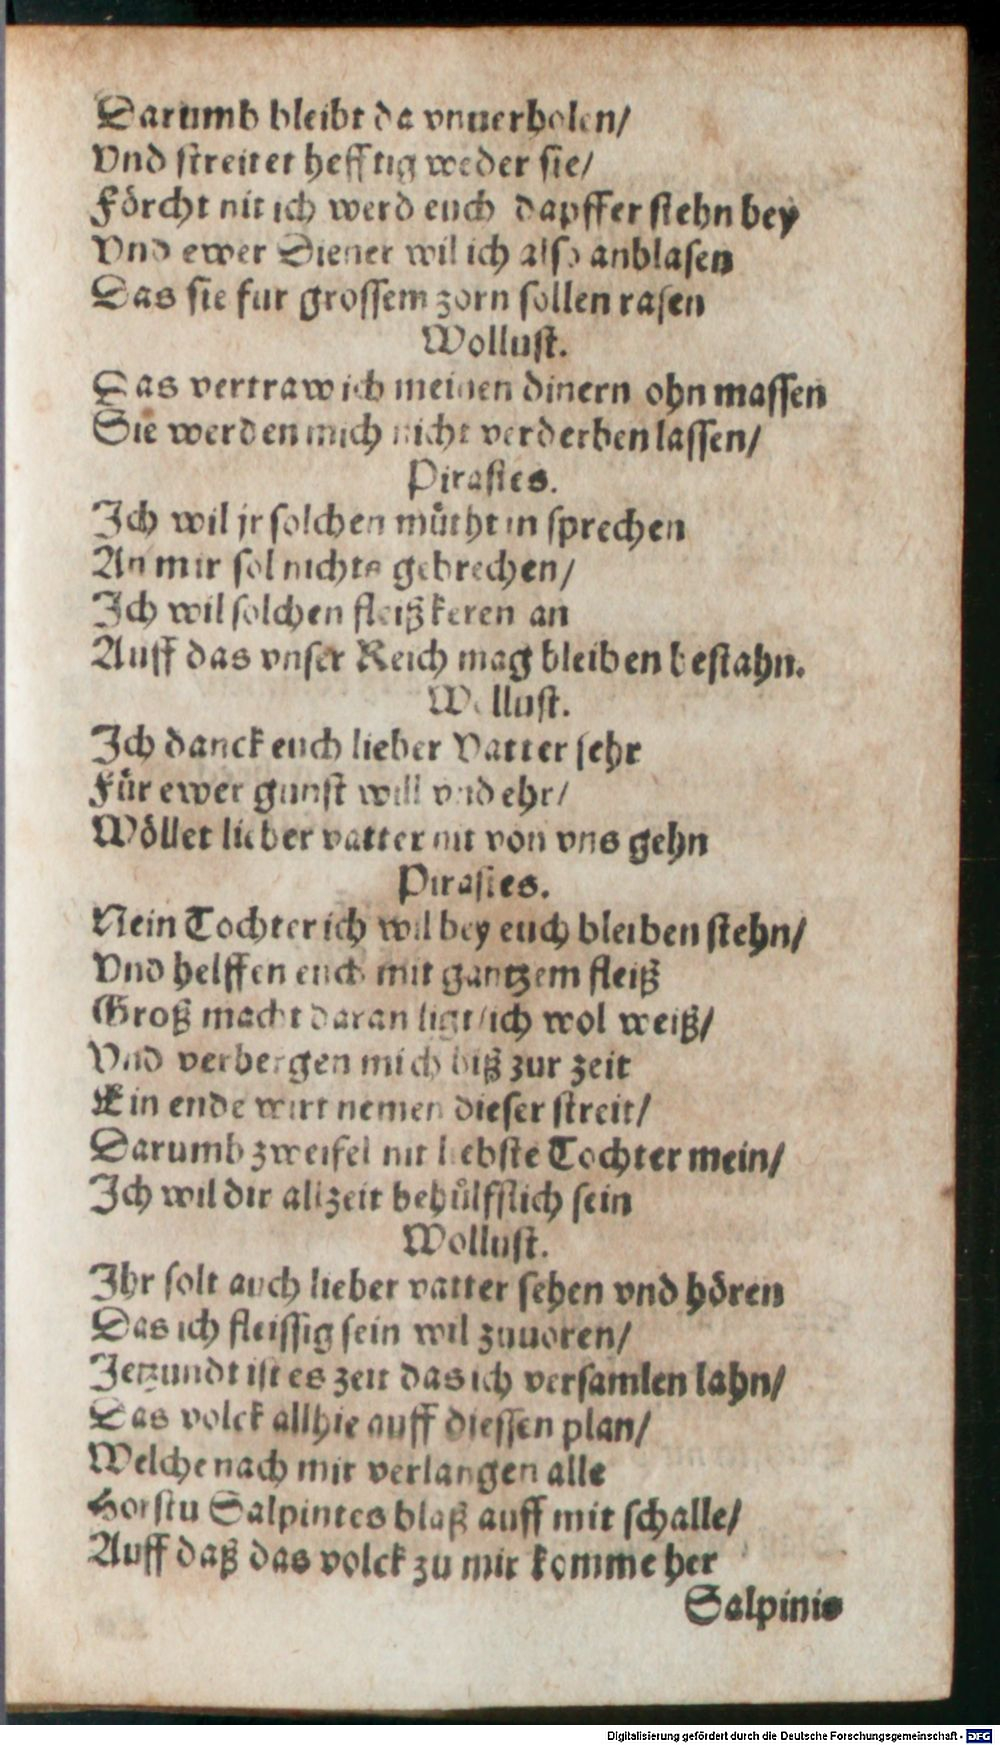 Darumb bleibt da vnuerholen/
Vnd streitet hefftig weder sie/
Förcht nit ich werd euch dapffer stehn bey
Vnd ewer Diener wil ich also anblasen
Das sie fur grossem zorn sollen rasen
Wollust.
Das vertraw ich meinen dinern ohn massen
Sie werden mich nicht verderben lassen/
Pirasies.
Ich wil jr solchen mütht in sprechen
An mir sol nichts gebrechen/
Ich wil solchen fleiß keren an
Auff das vnser Reich mag bleiben bestahn.
Wollust.
Ich danck euch lieber Vatter sehr
Für ewer gunst will vnd ehr/
Wöllet lieber vatter nit von vns gehn
Pirasies.
Nein Tochter ich wil bey euch bleiben stehn/
Vnd helffen euch mit gantzem fleiß
Groß macht daran ligt/ich wol weiß/
Vnd verbergen mich biß zur zeit
Ein ende wirt nemen dieser streit/
Darumb zweifel nit liebste Tochter mein/
Ich wil dir allzeit behülfflich sein
Wollust.
Ihr solt auch lieber vatter sehen vnd hören
Das ich fleissig sein wil zuuoren/
Jetzundt ist es zeit das ich versamlen lahn/
Das volck allhie auff diessen plan/
Welche nach mir verlangen alle
Horstu Salpintes blaß auff mit schalle/
Auff daß das volck zu mir komme her
Salpinis
Digitalisierung gefördert durch die Deutsche Forschungsgemeinschaft - DFG